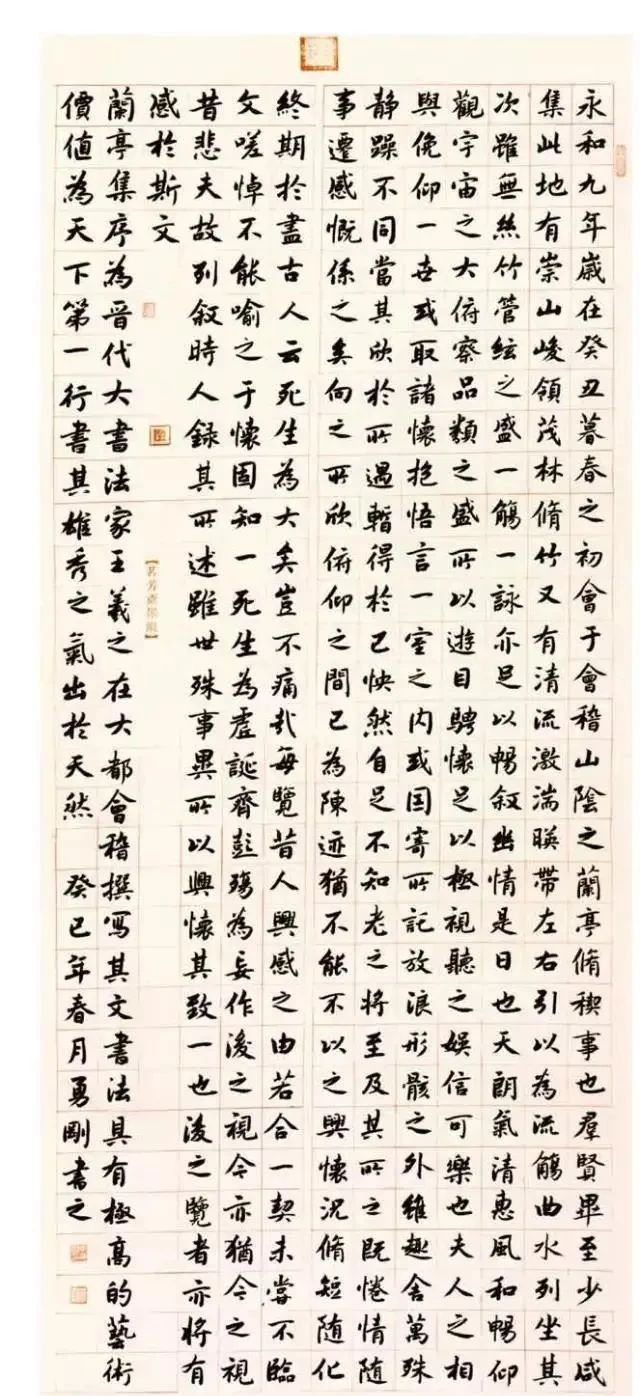 永和九年歲在癸丑暮春之初會于會稽山陰之蘭亭脩稧事也羣賢畢至少長咸
集此地有崇山峻領茂林脩竹又有清流激湍暎帶左右引以為流觴曲水列坐其
次雖無絲竹管絃之盛一觴一詠亦足以暢叙幽情是日也天朗氣清惠風和暢仰
觀宇宙之大俯察品類之盛所以遊目騁懷足以極視聽之娛信可樂也夫人之相
與俛仰一世或取諸懷抱悟言一室之內或因寄所記放浪形骸之外雖趣舍萬殊
静躁不同當其欣於所遇暫得於己怏然自足不知老之將至及其所之既惓情随
事遷感慨係之矣向之所欣俯仰之間已為陳迹猶不能不以之興懷況脩短随化
終期於盡古人云死生為大矣豈不痛哉每覽昔人興感之由若合一契未嘗不臨
文嗟悼不能喻之于懷固知一死生為虛誕齊彭殤為妄作後之視今亦猶今之視
昔悲夫故列叙時人録其所述雖世殊事異所以興懷其致一也後之覽者亦將有
感於斯文
蘭亭集序為晉代大書法家王羲之在大都會稽撰寫其文書法具有極高的藝術
價值為天下第一行書其雄秀之氣出於天然 癸已年春月勇剛書之